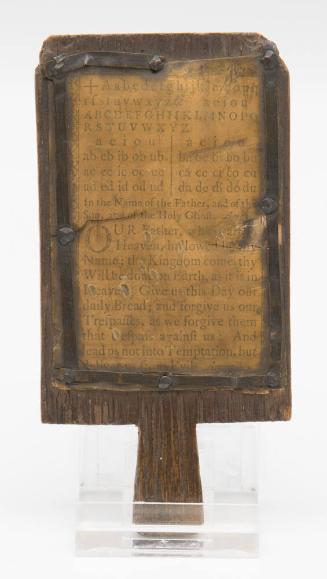 + Aabcdefghijklmnopq
rſstuvwxyz& aeiou
ABCDEFGHIJKLMNOPQ
RSTUVWXYZ
a e i o u | a e i o u
ab eb ib ob ub | ba be bi bo bu
ac ec ic oc uc | ca ce ci co cu
ad ed id od ud | da de di do du
In the Name of the Father, and of the
Son, and of the Holy Ghoſt.
OUR Father, which art in
Heaven, hallowed be thy
Name; thy Kingdom come, thy
Will be done on Earth, as it is in
Heaven. Give us this Day our
daily Bread; and forgive us our
Treſpaſſes, as we forgive them
that treſpaſs againſt us: And
lead us not into Temptation, but